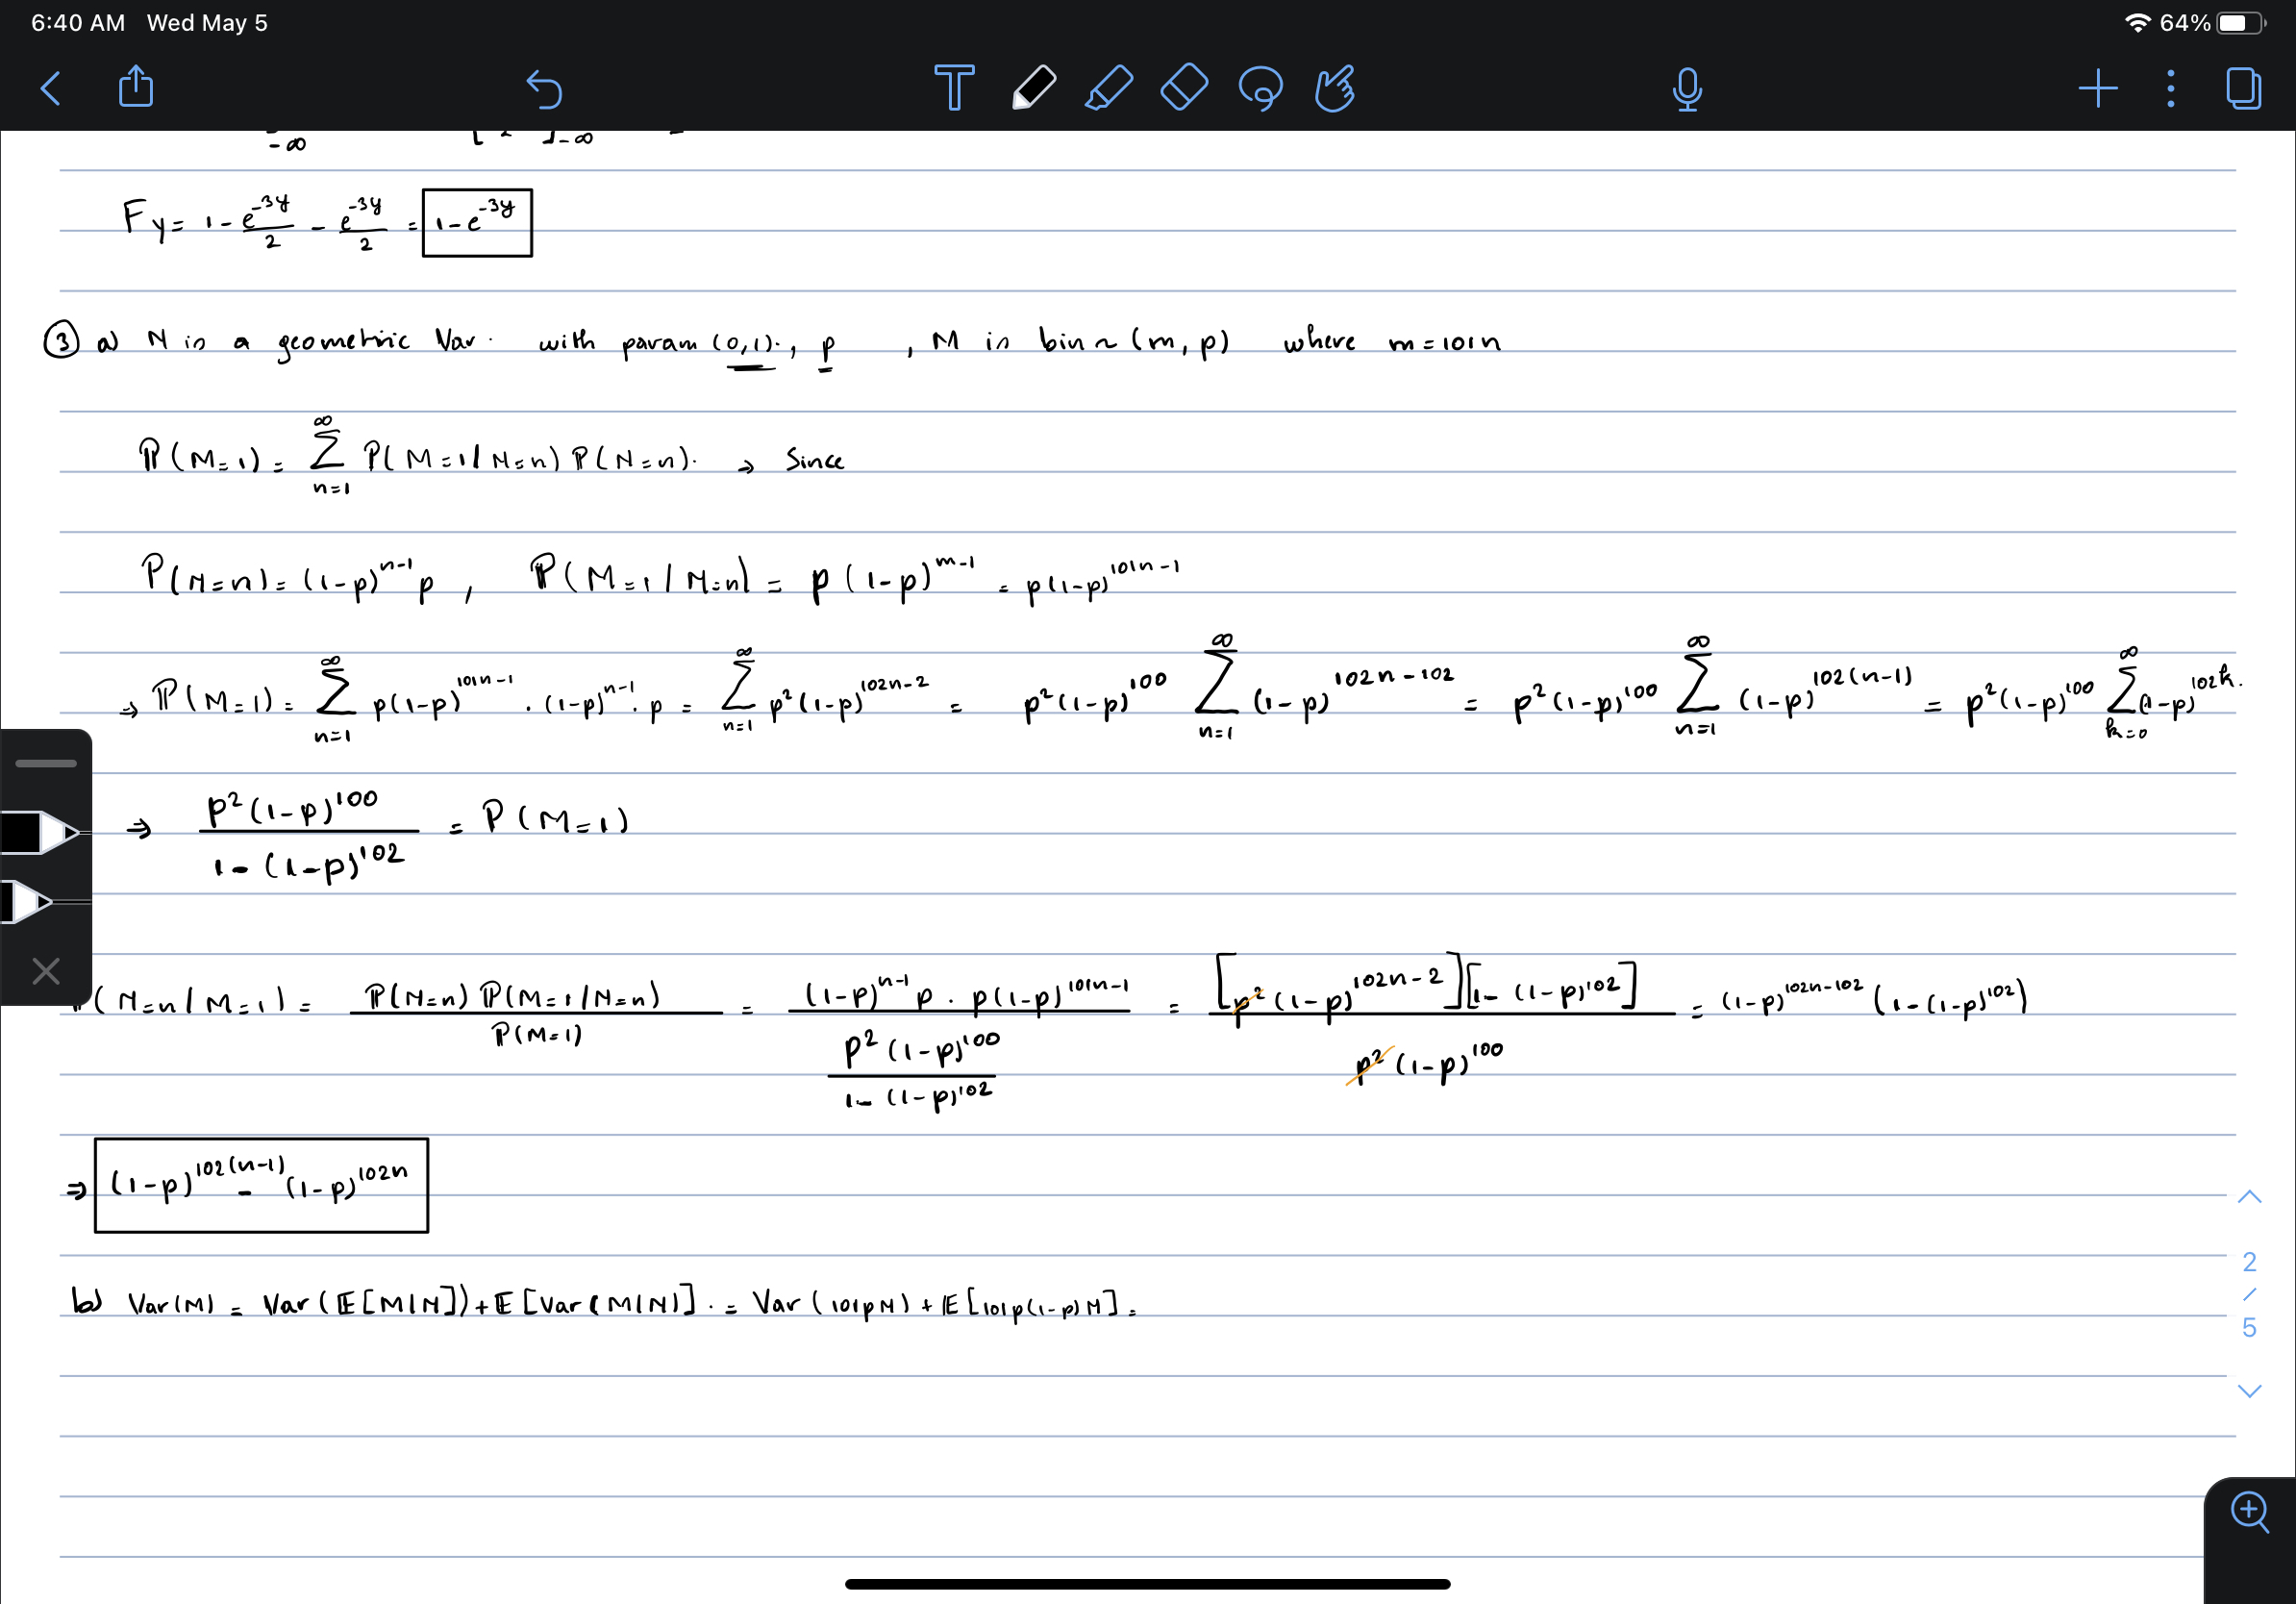 6:40 AM Wed May 5 64%
T
-∞ [ 2 ]-∞ =
F y = 1 - e^{-3y}/2 - e^{-3y}/2 = 1 - e^{-3y}
③ a) N is a geometric Var. with param (0,1)., p , M is bin ~ (m, p) where m = 101n
ℙ(M=1) = ∑_{n=1}^{∞} ℙ(M=1/N=n) ℙ(N=n). → Since
ℙ(N=n) = (1-p)^{n-1} p , ℙ(M=1/N=n) = p(1-p)^{m-1} = p(1-p)^{101n-1}
⇒ ℙ(M=1) = ∑_{n=1}^{∞} p(1-p)^{101n-1} · (1-p)^{n-1} · p = ∑_{n=1}^{∞} p²(1-p)^{102n-2} = p²(1-p)^{100} ∑_{n=1}^{∞} (1-p)^{102n-102} = p²(1-p)^{100} ∑_{n=1}^{∞} (1-p)^{102(n-1)} = p²(1-p)^{100} ∑_{k=0}^{∞} (1-p)^{102k}.
⇒ p²(1-p)^{100} / 1-(1-p)^{102} = ℙ(M=1)
(N=n/M=1) = ℙ(N=n) ℙ(M=1/N=n) / ℙ(M=1) = (1-p)^{n-1} p · p(1-p)^{101n-1} / (p²(1-p)^{100} / 1-(1-p)^{102}) = [p²(1-p)^{102n-2}][1-(1-p)^{102}] / p²(1-p)^{100} = (1-p)^{102n-102} (1-(1-p)^{102})
⇒ (1-p)^{102(n-1)} - (1-p)^{102n}
b) Var(M) = Var(𝔼[M|N]) + 𝔼[Var(M|N)] . = Var(101pN) + 𝔼[101p(1-p)N] =
2
/
5